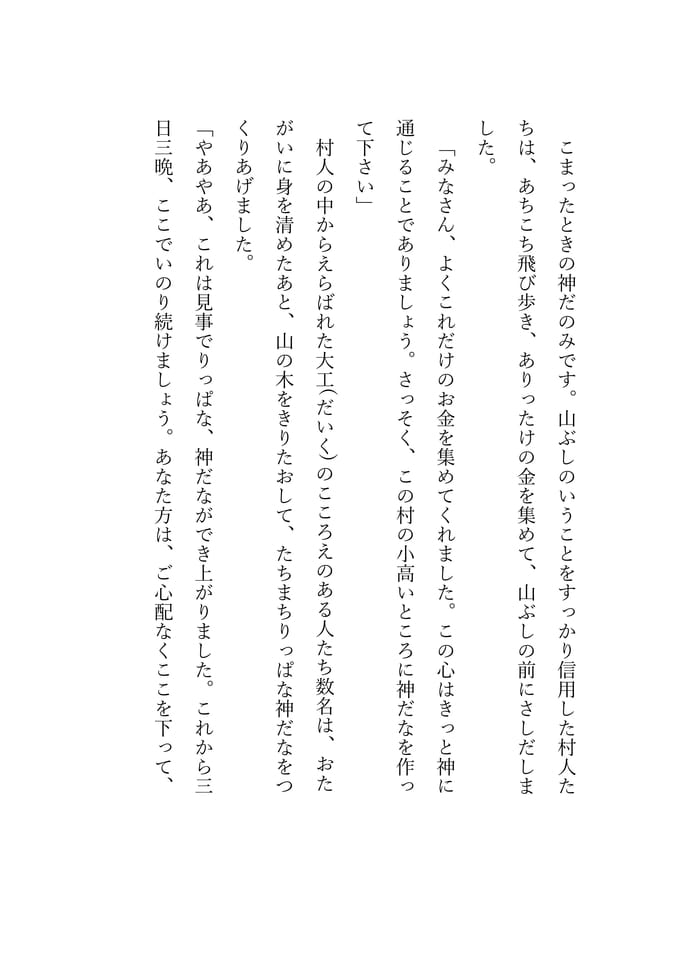 こまったときの神だのみです。山ぶしのいうことをすっかり信用した村人た
ちは、あちこち飛び歩き、ありったけの金を集めて、山ぶしの前にさしだしま
した。
　「みなさん、よくこれだけのお金を集めてくれました。この心はきっと神に
通じることでありましょう。さっそく、この村の小高いところに神だなを作っ
て下さい」
　村人の中からえらばれた大工(だいく)のこころえのある人たち数名は、おた
がいに身を清めたあと、山の木をきりたおして、たちまちりっぱな神だなをつ
くりあげました。
「やあやあ、これは見事でりっぱな、神だなができ上がりました。これから三
日三晩、ここでいのり続けましょう。あなた方は、ご心配なくここを下って、